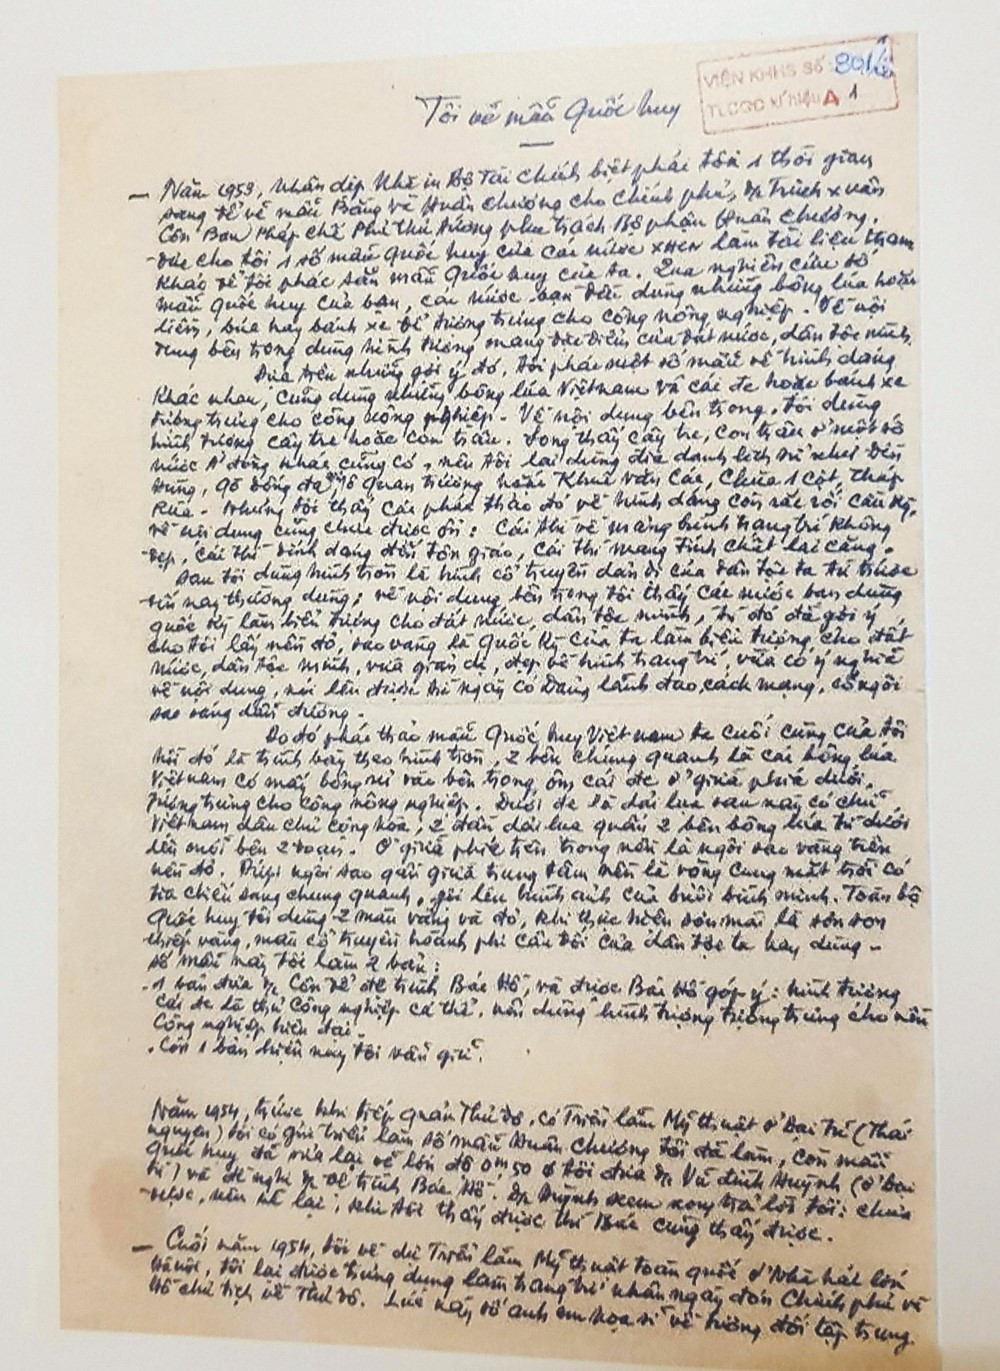 VIỆN KHHS Số: 801/
TLCGC kí hiệu A 1
Tôi vẽ mẫu Quốc huy
- Năm 1953, nhân dịp Nhà in Bộ Tài chính biệt phái tôi 1 thời gian
sang để vẽ mẫu Bằng và Huân chương cho chính phủ, Trịnh xuân
Côn Ban Pháp chế Phủ thủ tướng phụ trách Bộ phận Huân chương.
đưa cho tôi 1 số mẫu Quốc huy của các nước XHCN làm tài liệu tham
khảo để tôi phác sẵn mẫu Quốc huy của ta. Qua nghiên cứu số
mẫu Quốc huy của bạn, các nước bạn đều dùng những bông lúa hoặc
liềm, búa hay bánh xe để tượng trưng cho công nông nghiệp. Về nội
dung bên trong dùng hình tượng mang đặc điểm của đất nước, dân tộc mình.
Dựa trên những gợi ý đó, tôi phác một số mẫu về hình dáng
khác nhau, cũng dùng những bông lúa Việt nam và cái đe hoặc bánh xe
tượng trưng cho công nông nghiệp. Về nội dung bên trong, tôi dùng
hình tượng cây tre hoặc con trâu. Song thấy cây tre, con trâu ở một số
nước Á đông khác cũng có, nên tôi lại dùng địa danh lịch sử như Đền
Hùng, Gò Đống đa, quan trường hoặc Khuê văn các, Chùa 1 cột, Tháp
Rùa. Nhưng tôi thấy các phác thảo đó về hình dáng còn rắc rối cầu kỳ,
về nội dung cũng chưa được ổn: Cái thì về mang hình trang trí không
đẹp, cái thì dính dáng đến tôn giáo, cái thì mang tính chất lai căng.
Sau tôi dùng hình tròn là hình cổ truyền dản dị của dân tộc ta từ trước
đến nay thường dùng; về nội dung bên trong tôi thấy các nước bạn dùng
quốc kỳ làm biểu tượng cho đất nước, dân tộc mình, từ đó đã gợi ý
cho tôi lấy nền đỏ, sao vàng là Quốc kỳ của ta làm biểu tượng cho đất
nước, dân tộc mình, vừa giản dị, đẹp về hình trang trí, vừa có ý nghĩa
về nội dung, nói lên được từ ngày có Đảng lãnh đạo cách mạng, có ngôi
sao sáng dẫn đường.
Do đó phác thảo mẫu Quốc huy Việt nam ta cuối cùng của tôi
hồi đó là trình bày theo hình tròn, 2 bên chung quanh là các bông lúa
Việt nam có mấy bông rủ vào bên trong, ôm cái đe ở giữa phía dưới,
tượng trưng cho công nông nghiệp. Dưới đe là dải lụa sau này có chữ
Việt nam dân chủ cộng hòa, 2 đầu dải lụa quấn 2 bên bông lúa từ dưới
lên Ở giữa phía trên trong nền là ngôi sao vàng trên
nền đỏ. Dưới ngôi sao gần giữa trung tâm nền là vòng cung mặt trời có
tia chiếu sáng chung quanh, gợi lên hình ảnh của buổi bình minh. Toàn bộ
Quốc huy tôi dùng 2 màu vàng và đỏ, khi thực hiện sơn mài là sơn son
thiếp vàng, màu cổ truyền hoành phi câu đối của dân tộc ta hay dùng -
Số mẫu này tôi làm 2 bản:
- 1 bản đưa Côn để đệ trình Bác Hồ, và được Bác Hồ góp ý: hình tượng
cái đe là thủ công nghiệp cá thể, nên dùng hình tượng tượng trưng cho nền
Công nghiệp hiện đại.
. Còn 1 bản hiện nay tôi vẫn giữ.
Năm 1954, trước khi tiếp quản Thủ đô, có Triển lãm Mỹ thuật ở Đại Từ (Thái
nguyên) tôi có gửi triển lãm số mẫu Huân chương tôi đã làm, còn mẫu
Quốc huy đã sửa lại vẽ lớn độ 0m50 tôi đưa Vũ đình Huỳnh (ở Đại
Từ) và đề nghị để trình Bác Hồ. Huỳnh xem xong trả lời tôi: chưa
được, nên vẽ lại, khi tôi thấy được thì Bác cũng thấy được.
- Cuối năm 1954, tôi về dự Triển lãm Mỹ thuật toàn quốc ở Nhà hát lớn
Hà nội, tôi lại được trưng dụng làm trang trí nhân ngày đón Chính phủ và
Hồ chủ tịch về Thủ đô. Lúc này số anh em họa sĩ về tương đối tập trung